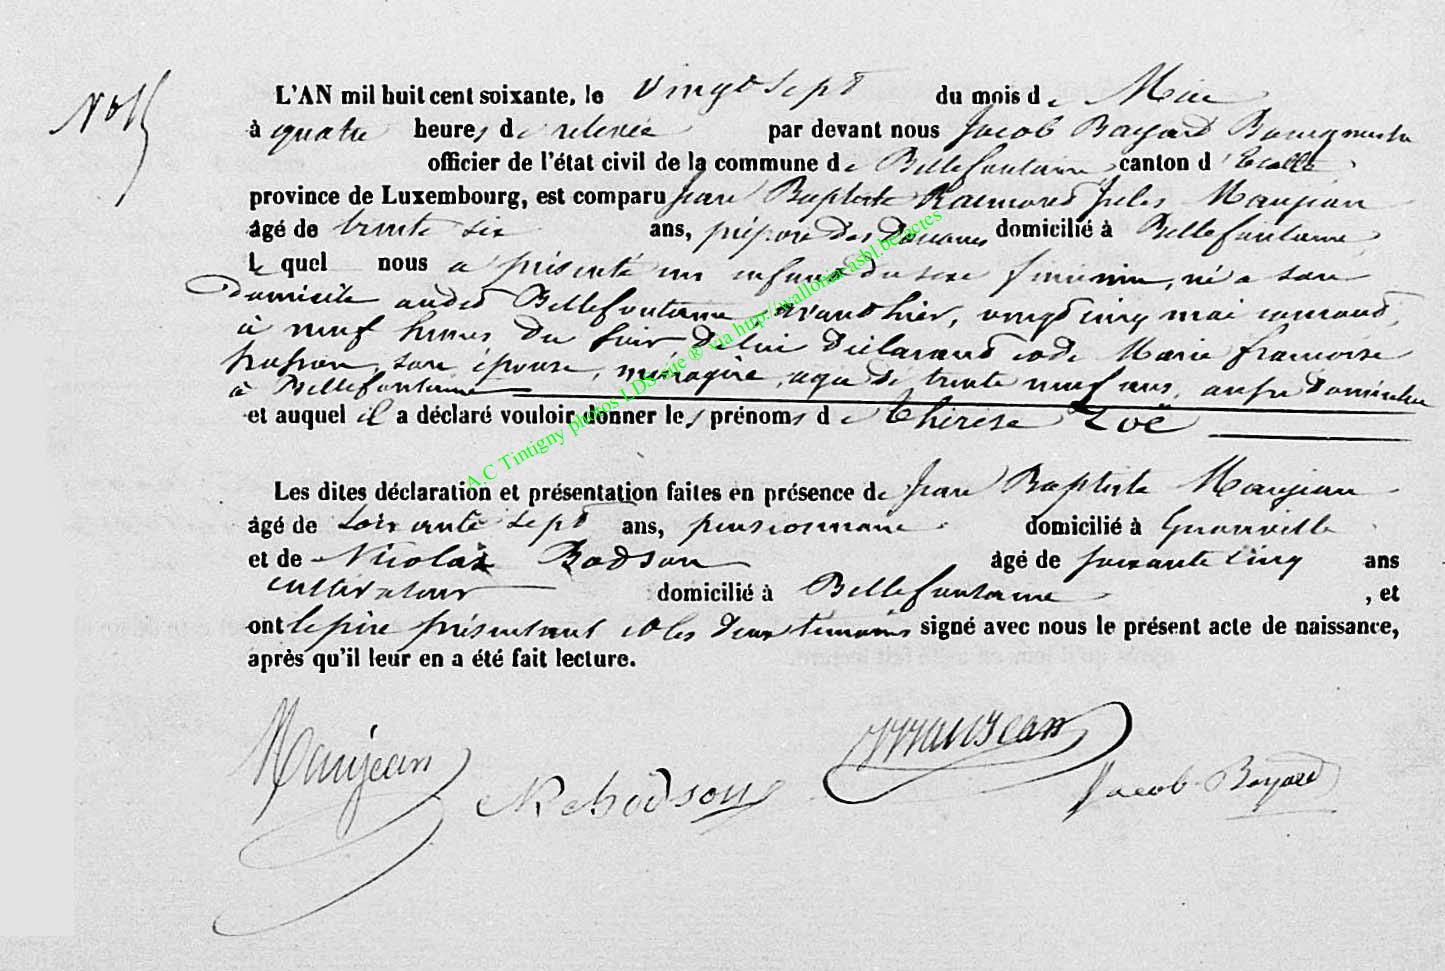 L'AN mil huit cent soixante, le vingt sept du mois de Mai
à quatre heures de relevée par devant nous Jacob Bayard Bourgmestre
officier de l'état civil de la commune de Bellefontaine canton d'Etalle
province de Luxembourg, est comparu Jean Baptiste Raimond Jules Maujean
âgé de trente six ans, préposé des Douanes domicilié à Bellefontaine,
le quel nous a présenté un enfant du sexe féminin, né a son
Domicile audit Bellefontaine, avant hier, vingt cinq mai courant,
à neuf heures du soir de lui Déclarant et de Marie françoise
son épouse, ménagère, agée de trente neuf ans, aussi Domiciliée
à Bellefontaine
et auquel il a déclaré vouloir donner les prénoms de Thérèse Zoé
Les dites déclaration et présentation faites en présence de Jean Baptiste Maujean
âgé de soixante sept ans, pensionnaire domicilié à
et de Nicolas Bodson âgé de soixante cinq ans
cultivateur domicilié à Bellefontaine, et
ont le père présentant et les deux témoins signé avec nous le présent acte de naissance,
après qu'il leur en a été fait lecture.
Maujean
Maujean
Bodson
Jacob Bayard
A.C Tintigny photos LDS site ® via http://wallonia-asbl.be/actes